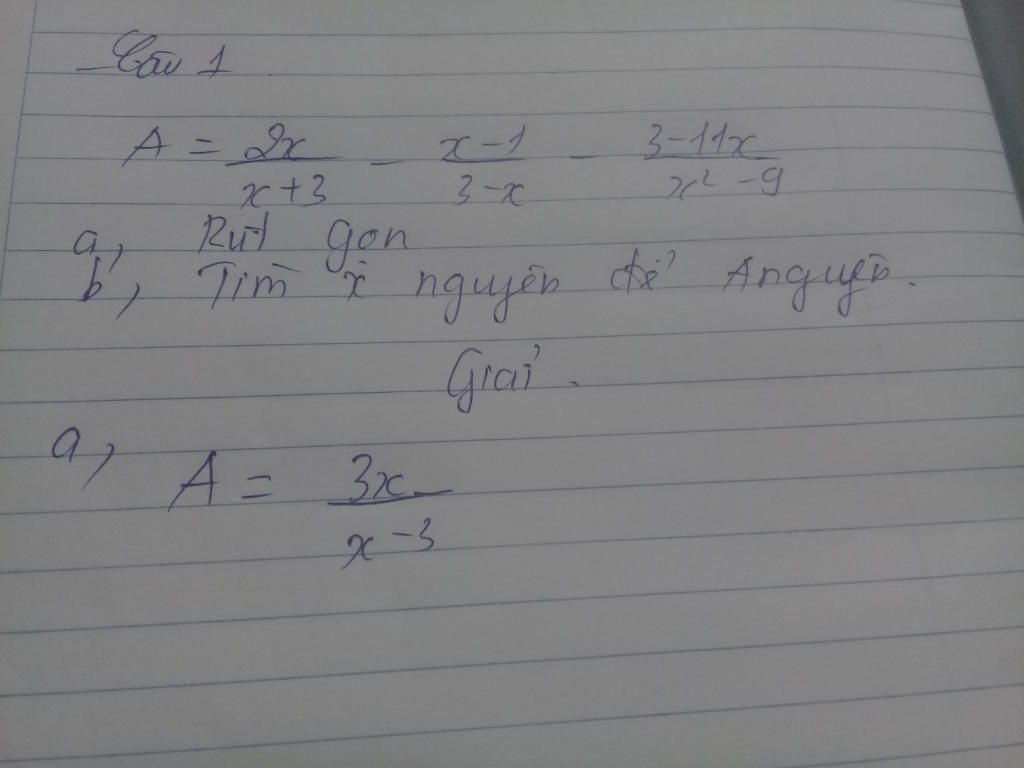 Câu 1
A = 2x/(x+3) - (x-1)/(3-x) - (3-11x)/(x² - 9)
a, Rút gọn
b, Tìm x nguyên để A nguyên.
Giải.
a, A = 3x/(x-3)